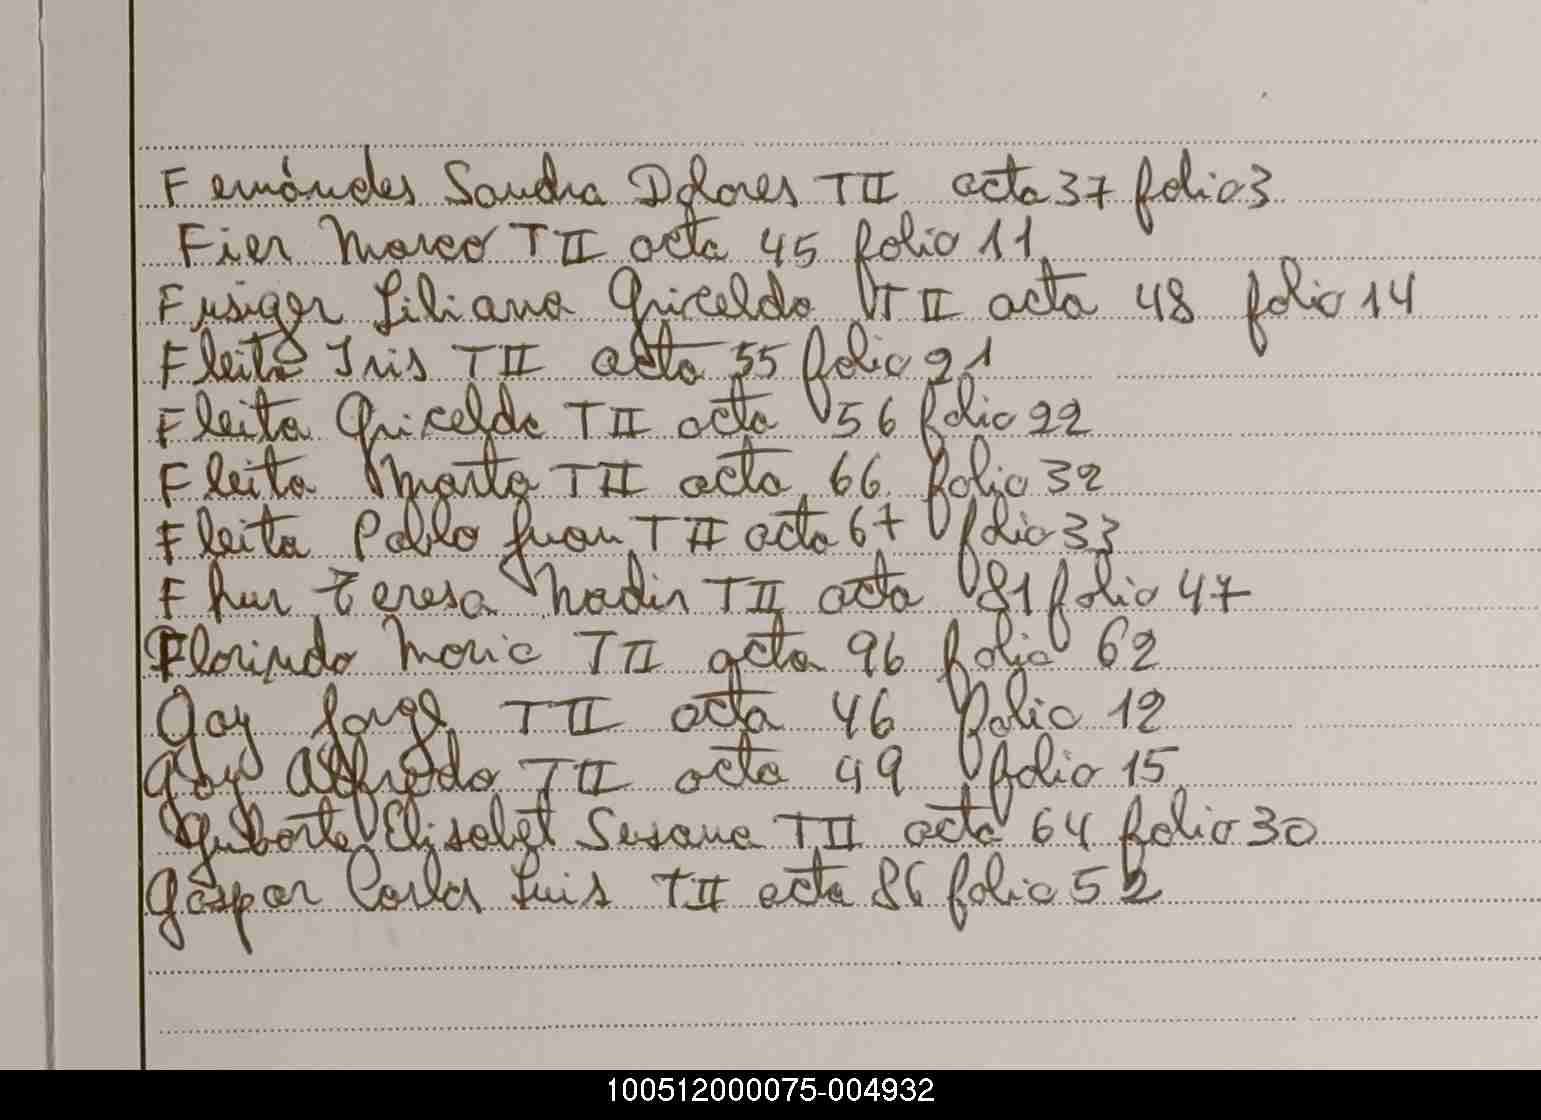 Fernándes Sandra Dolores TII acta 37 folio 3
Fier Marco TII acta 45 folio 11
Fusiger Liliana Griselda TII acta 48 folio 14
Fleita Iris TII acta 55 folio 21
Fleita Griselda TII acta 56 folio 22
Fleita Marta TII acta 66 folio 32
Fleita Pablo Juan TII acta 67 folio 33
Fhur Teresa Nadir TII acta 81 folio 47
Florindo Maria TII acta 96 folio 62
Gay Jorge TII acta 46 folio 12
Goy Alfredo TII acta 49 folio 15
Elisabet Susana TII acta 64 folio 30
Gaspar Carlos Luis TII acta 86 folio 52
100512000075-004932